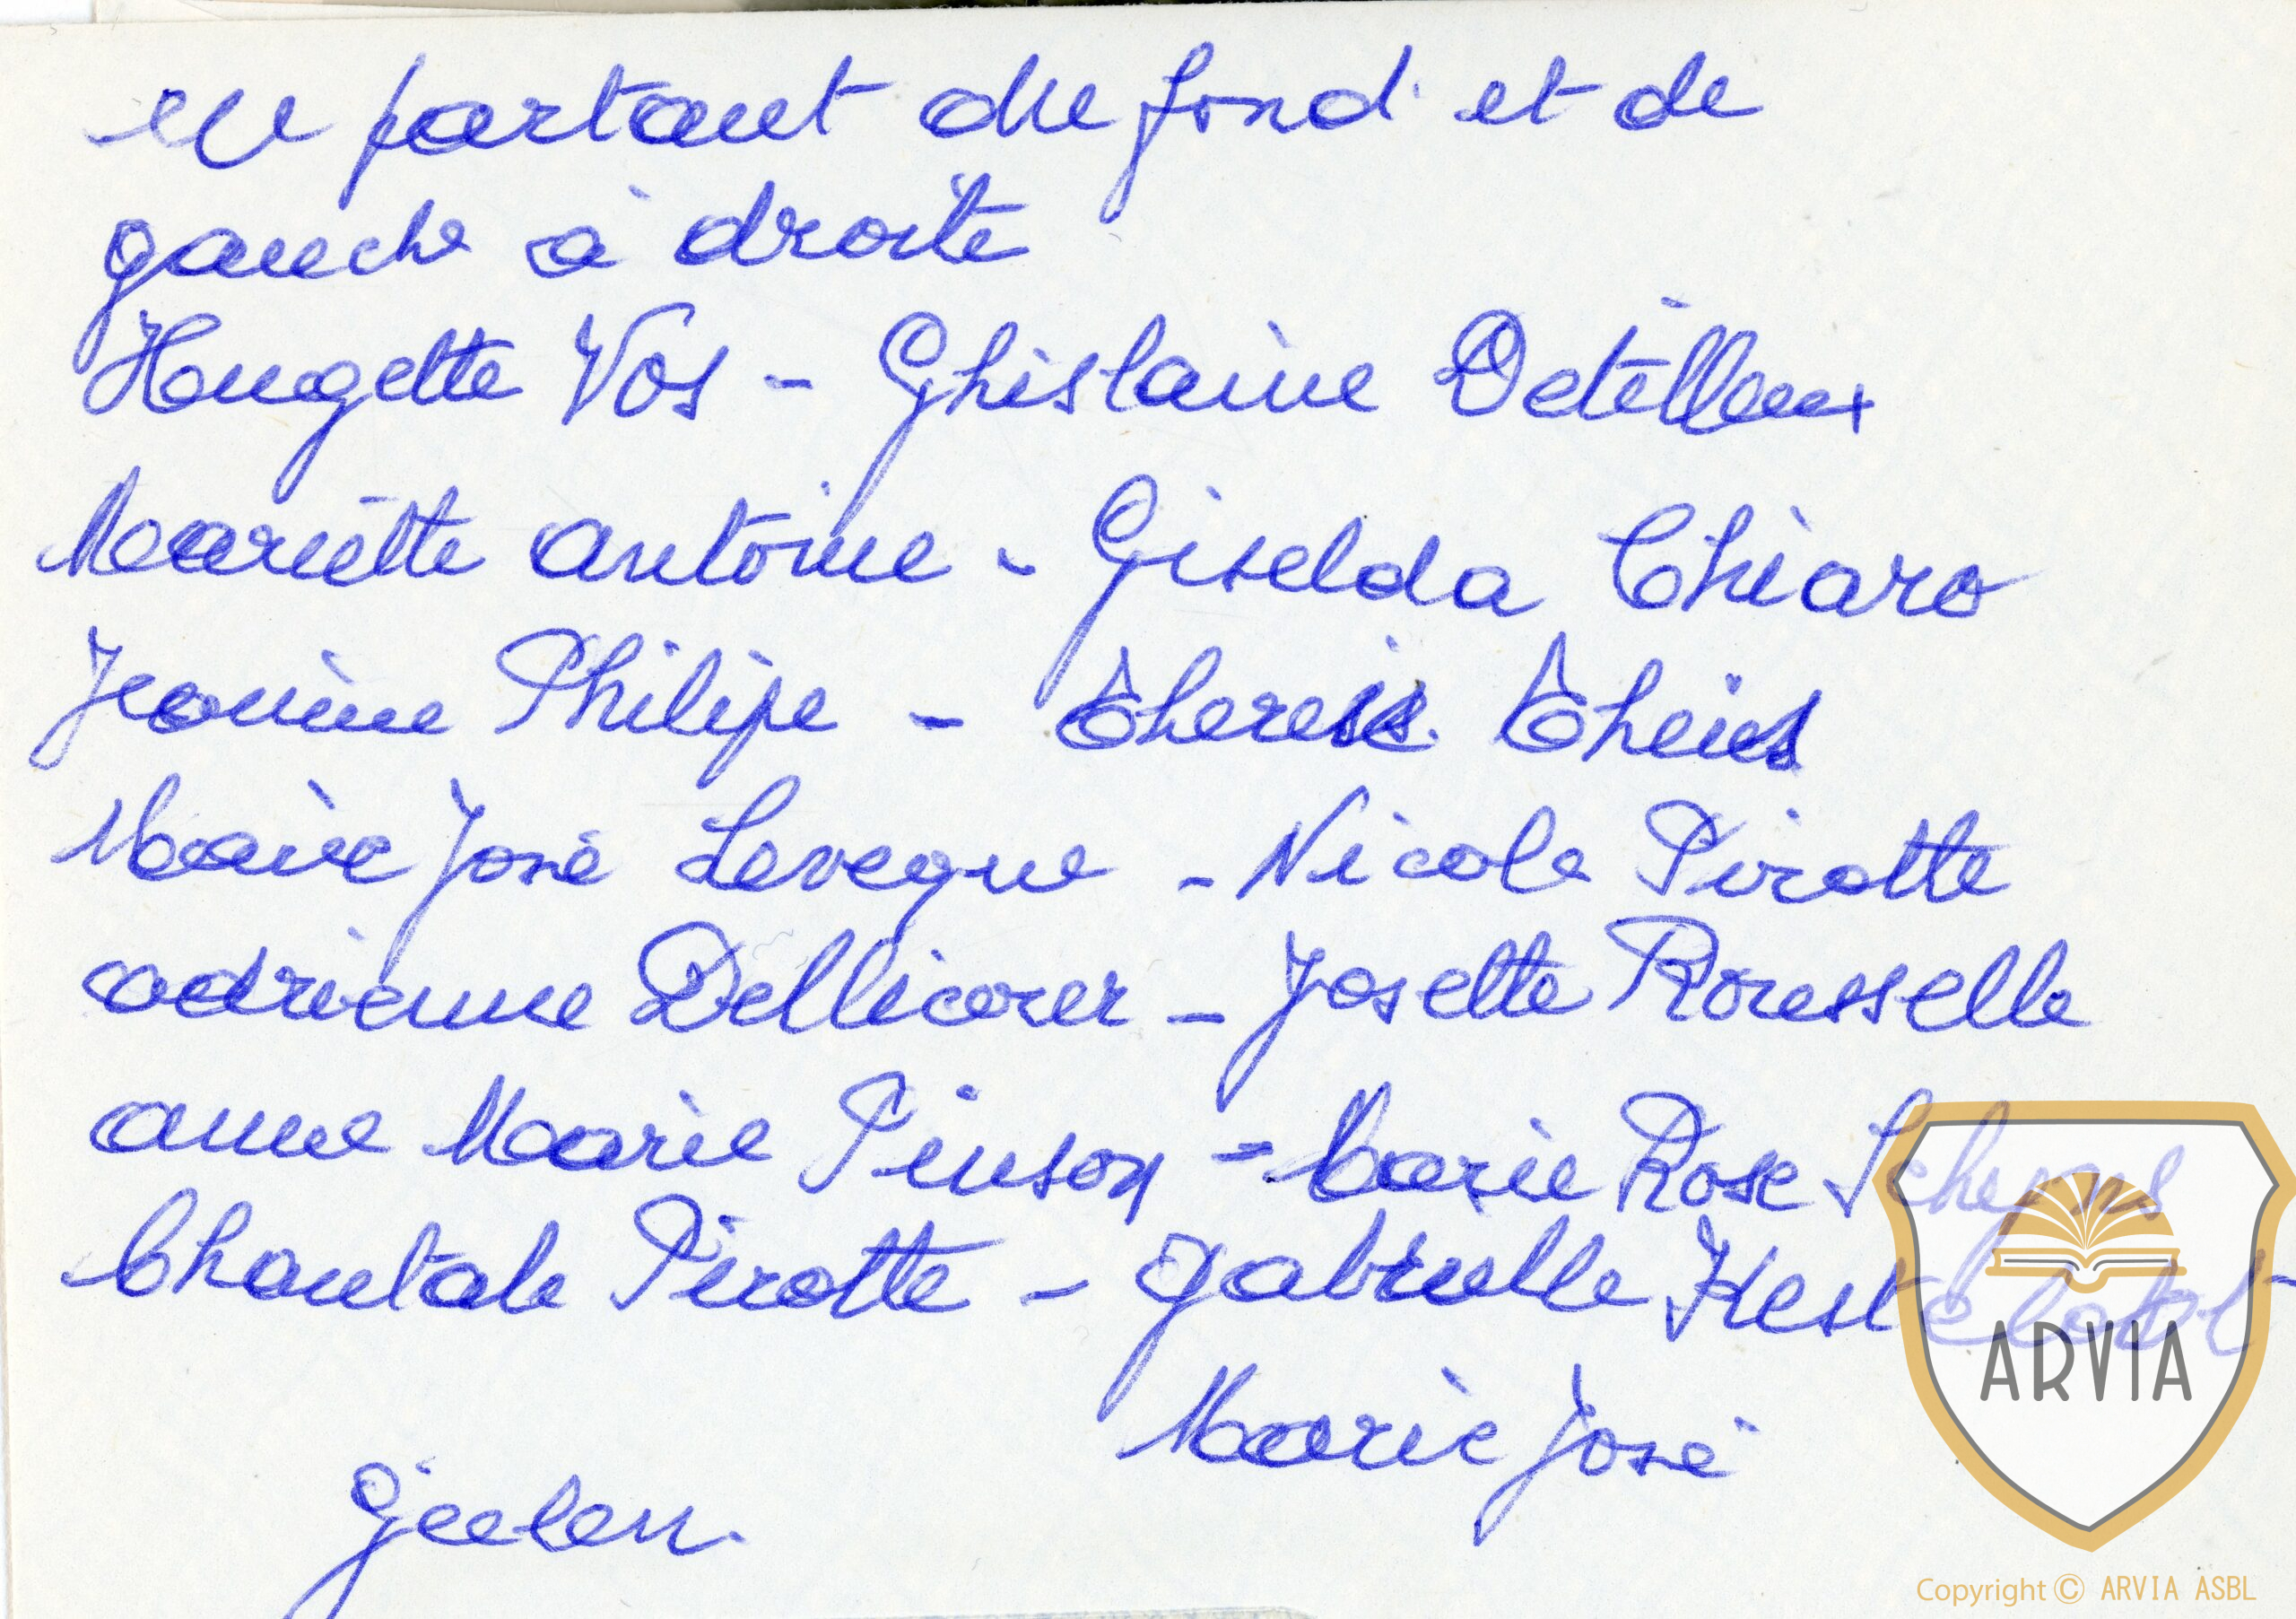 en partant du fond et de
gauche à droite
Hugette Vos - Ghislaine Detilleux
Mariette antoine - Giselda Chiaro
Jeanine Philipe - Therese Theies
Marie José Leveque - Nicole Pirotte
adrienne Dellicour - Josette Rousselle
anne Marie Pinson - Marie Rose Schyns
Chantale Pirotte - gabrielle Kestelot -
Marie José
Geelen.
ARVIA
Copyright © ARVIA ASBL